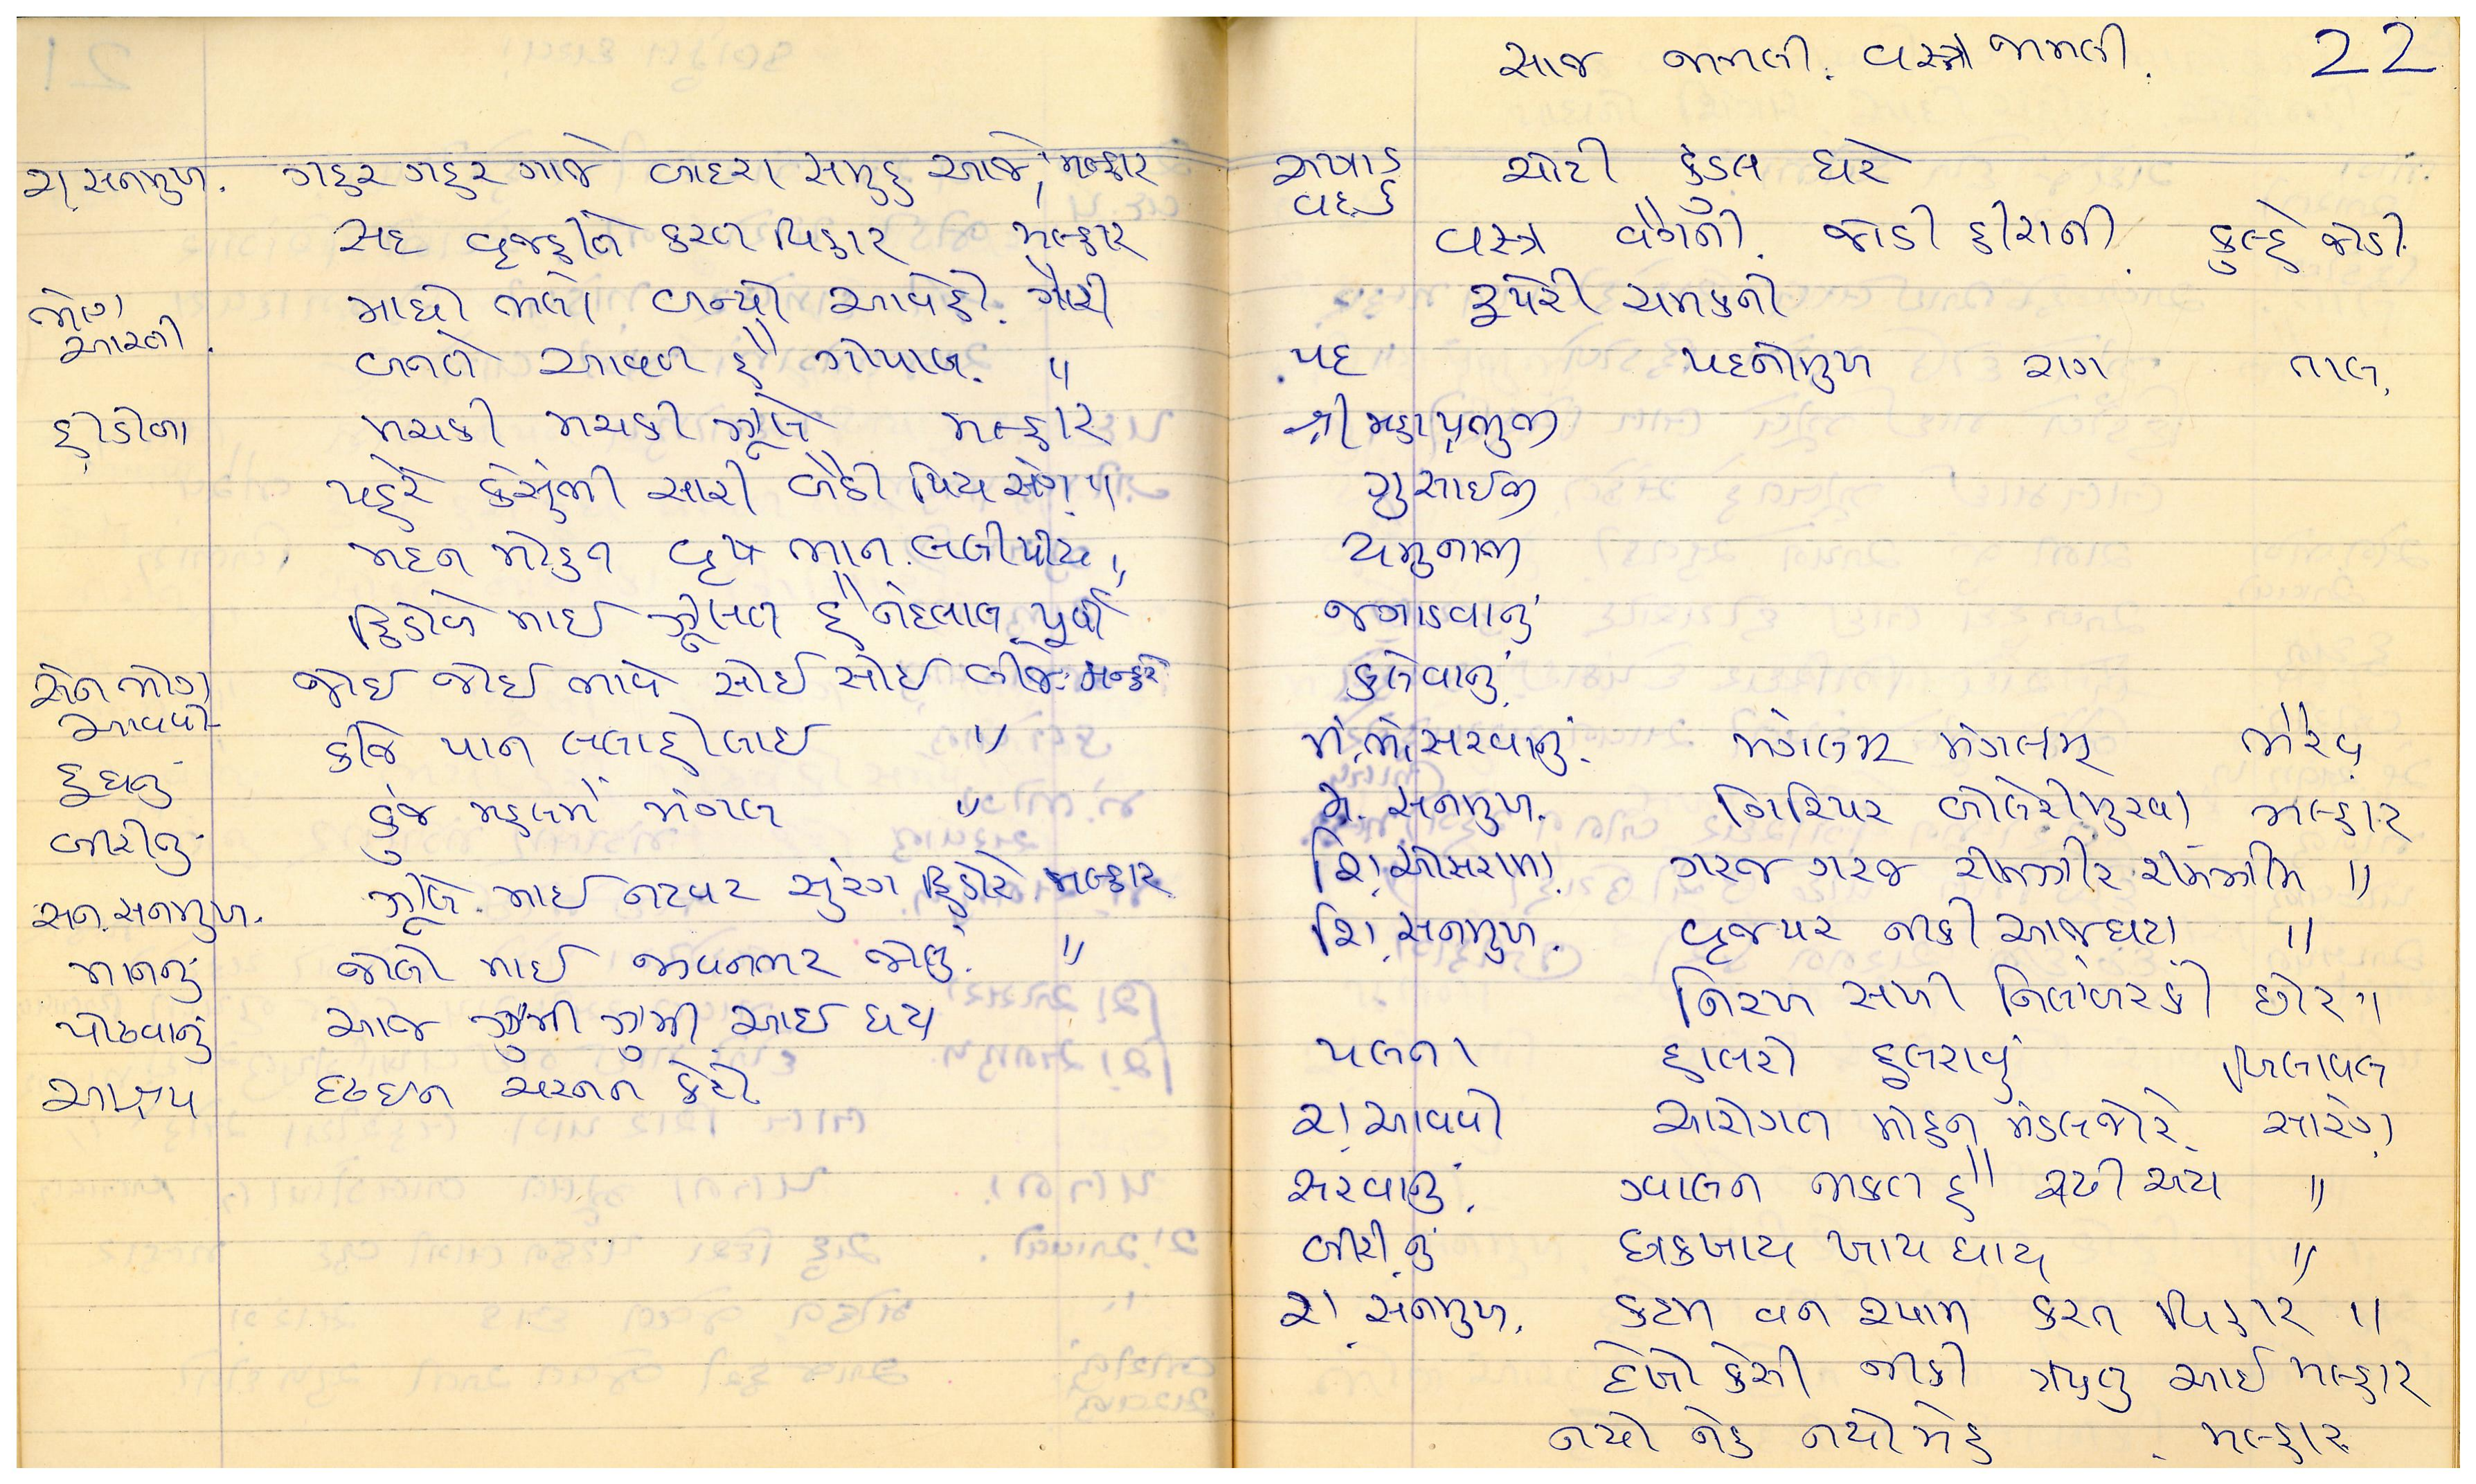 રા. સનમુખ. ગહર ગહર ગાજે બાદરા સમુહ આજે, મલ્હાર
સદ વૃજહીતે કરત વિહાર મલ્હાર
ભોગ આરતી. માધો ભલો બન્યો આવેહો. ગૌરી
બનતે આવત હૈ ગોપાલ. "
હીંડોળા મચકી મચકી ઝૂલે મલ્હાર
પહેરે કસુંભી સારી બેઠી પિય સંગ "
મદન મોહન વૃખ ભાન લલીપીય "
હિંડોળે માઈ ઝૂલત હૈ નંદલાલ પૂર્વી
સેન ભોગ આવવો જોઈ જોઈ ભાવે સોઈ સોઈ લીજે મલ્હાર
દૂધનું કીજે પાન લલાહોલાઈ "
બીરીનું કુંજ મહલમેં મંગલ "
સેન. સનમુખ. ઝૂલે માઈ નટવર સુરંગ હિંડોરે મલ્હાર
માનનું બોલી માઈ જોવનભર "
પોઢવાનું આજ ઝુમી ઝુમી આઈ ઘટા
આશ્રય દૃઢઇન ચરનન કેરો
સાજ જામલી. વસ્ત્રો જામલી. 22
અષાડ વદ ૬ ચોટી કુંડલ ધરે
વસ્ત્ર બેંગની. જોડી હીરાની. કુલ્હે જોડી.
રૂપેરી ચમકની
પદ પદનોમુખ રાગ તાલ.
શ્રી મહાપ્રભુજી
ગુસાઈજી
યમુનાજી
જગાડવાનું
કલેવાનું
મં. ભો. સરવાનું. મંગલમ મંગલમ્ ભૈરવ
મં. સનમુખ. ગિરિપર બોલેરીમુરવા મલ્હાર
શિં. ઓસરામાં. ગરજ ગરજ રીમઝીર રીમઝીમ "
શિં. સનમુખ. વૃજપર નીકી આજઘટા "
નિરખ સખી નિલાંબરકો છોર "
પલના હાલરો હુલરાવું બિલાવલ
રા. આવવો આરોગત મોહન મંડલજોરે સારંગ
સરવાનું. ગ્વાલન જાકત હૈ "
બીરીનું છાકખાય ખાય ધાય "
રા. સનમુખ. કદમ વન શ્યામ કરત વિહાર "
દેખો કેસી નીકી આઈ મલ્હાર
નયો નેહ નયોમેહ મલ્હાર